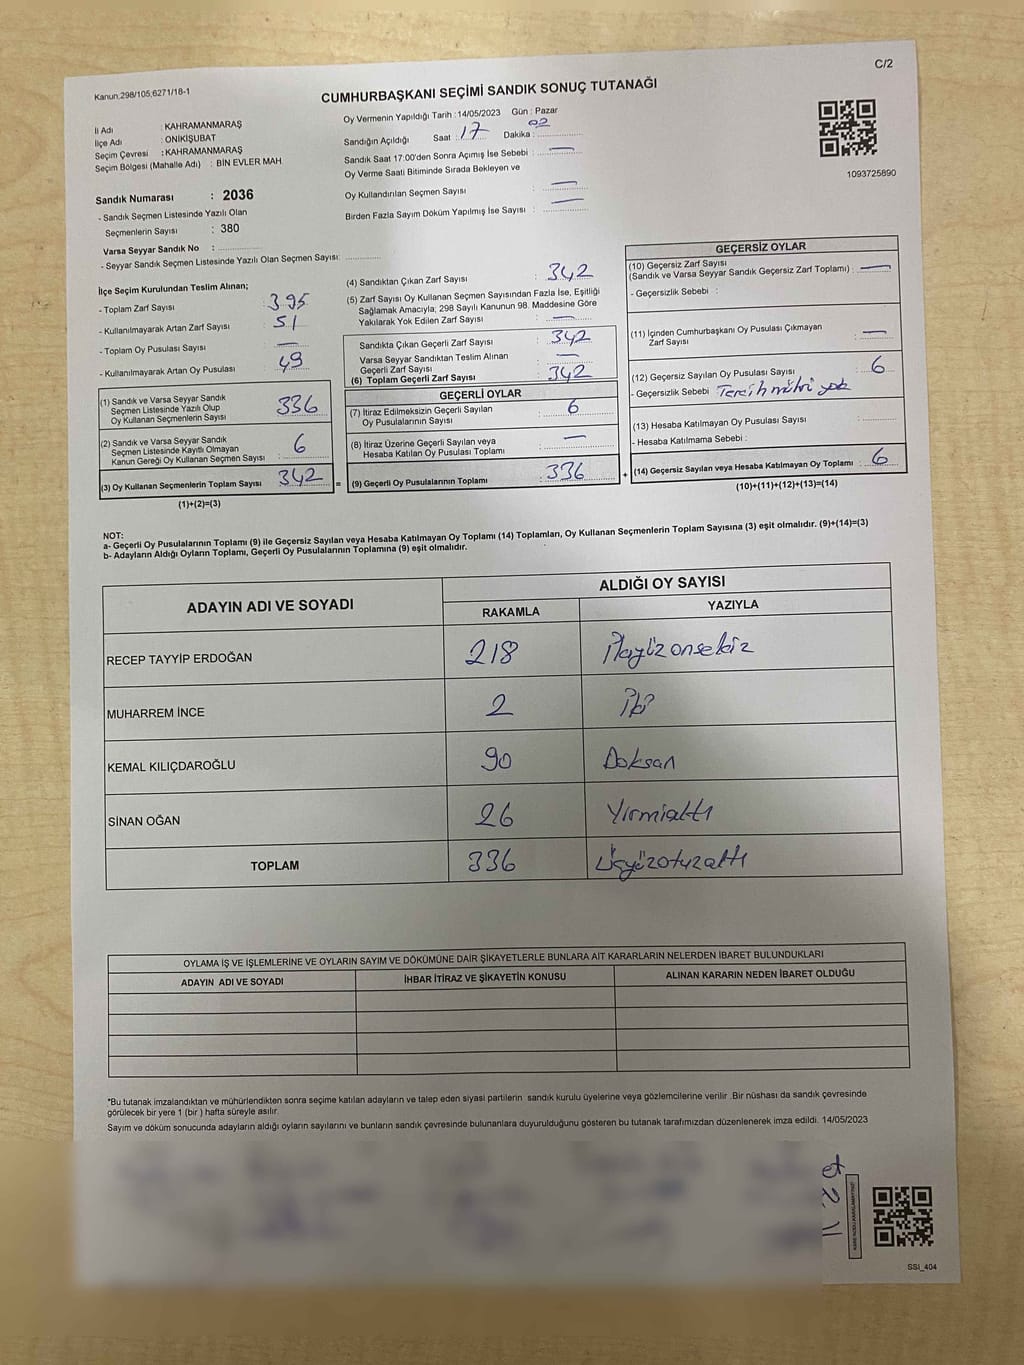 C/2
Kanun:298/105,6271/18-1
CUMHURBAŞKANI SEÇİMİ SANDIK SONUÇ TUTANAĞI
İl Adı : KAHRAMANMARAŞ
İlçe Adı : ONİKİŞUBAT
Seçim Çevresi : KAHRAMANMARAŞ
Seçim Bölgesi (Mahalle Adı) : BİN EVLER MAH
Oy Vermenin Yapıldığı Tarih :14/05/2023 Gün : Pazar
Sandığın Açıldığı Saat : 17 Dakika : 02
Sandık Saat 17:00'den Sonra Açımış İse Sebebi : —
Oy Verme Saati Bitiminde Sırada Bekleyen ve
Oy Kullandırılan Seçmen Sayısı : —
Birden Fazla Sayım Döküm Yapılmış İse Sayısı : —
1093725890
Sandık Numarası : 2036
- Sandık Seçmen Listesinde Yazılı Olan
Seçmenlerin Sayısı : 380
Varsa Seyyar Sandık No :
- Seyyar Sandık Seçmen Listesinde Yazılı Olan Seçmen Sayısı:
İlçe Seçim Kurulundan Teslim Alınan;
- Toplam Zarf Sayısı : 395
- Kullanılmayarak Artan Zarf Sayısı : 51
- Toplam Oy Pusulası Sayısı : —
- Kullanılmayarak Artan Oy Pusulası : 49
(1) Sandık ve Varsa Seyyar Sandık
Seçmen Listesinde Yazılı Olup
Oy Kullanan Seçmenlerin Sayısı : 336
(2) Sandık ve Varsa Seyyar Sandık
Seçmen Listesinde Kayıtlı Olmayan
Kanun Gereği Oy Kullanan Seçmen Sayısı : 6
(3) Oy Kullanan Seçmenlerin Toplam Sayısı : 342
(1)+(2)=(3)
(4) Sandıktan Çıkan Zarf Sayısı : 342
(5) Zarf Sayısı Oy Kullanan Seçmen Sayısından Fazla İse, Eşitliği
Sağlamak Amacıyla; 298 Sayılı Kanunun 98. Maddesine Göre
Yakılarak Yok Edilen Zarf Sayısı : —
Sandıkta Çıkan Geçerli Zarf Sayısı : 342
Varsa Seyyar Sandıktan Teslim Alınan
Geçerli Zarf Sayısı : —
(6) Toplam Geçerli Zarf Sayısı : 342
GEÇERLİ OYLAR
(7) İtiraz Edilmeksizin Geçerli Sayılan
Oy Pusulalarının Sayısı : 6
(8) İtiraz Üzerine Geçerli Sayılan veya
Hesaba Katılan Oy Pusulası Toplamı : —
= (9) Geçerli Oy Pusulalarının Toplamı : 336
GEÇERSİZ OYLAR
(10) Geçersiz Zarf Sayısı
(Sandık ve Varsa Seyyar Sandık Geçersiz Zarf Toplamı) : —
- Geçersizlik Sebebi :
(11) İçinden Cumhurbaşkanı Oy Pusulası Çıkmayan
Zarf Sayısı : —
(12) Geçersiz Sayılan Oy Pusulası Sayısı : 6
- Geçersizlik Sebebi : Tercih mührü yok
(13) Hesaba Katılmayan Oy Pusulası Sayısı :
- Hesaba Katılmama Sebebi :
+ (14) Geçersiz Sayılan veya Hesaba Katılmayan Oy Toplamı : 6
(10)+(11)+(12)+(13)=(14)
NOT:
a- Geçerli Oy Pusulalarının Toplamı (9) ile Geçersiz Sayılan veya Hesaba Katılmayan Oy Toplamı (14) Toplamları, Oy Kullanan Seçmenlerin Toplam Sayısına (3) eşit olmalıdır. (9)+(14)=(3)
b- Adayların Aldığı Oyların Toplamı, Geçerli Oy Pusulalarının Toplamına (9) eşit olmalıdır.
ADAYIN ADI VE SOYADI
ALDIĞI OY SAYISI
RAKAMLA YAZIYLA
RECEP TAYYİP ERDOĞAN 218 İkiyüzonsekiz
MUHARREM İNCE 2 İki
KEMAL KILIÇDAROĞLU 90 Doksan
SİNAN OĞAN 26 Yirmialtı
TOPLAM 336 Üçyüzotuzaltı
OYLAMA İŞ VE İŞLEMLERİNE VE OYLARIN SAYIM VE DÖKÜMÜNE DAİR ŞİKAYETLERLE BUNLARA AİT KARARLARIN NELERDEN İBARET BULUNDUKLARI
ADAYIN ADI VE SOYADI İHBAR İTİRAZ VE ŞİKAYETİN KONUSU ALINAN KARARIN NEDEN İBARET OLDUĞU
*Bu tutanak imzalandıktan ve mühürlendikten sonra seçime katılan adayların ve talep eden siyasi partilerin sandık kurulu üyelerine veya gözlemcilerine verilir .Bir nüshası da sandık çevresinde
görülecek bir yere 1 (bir ) hafta süreyle asılır.
Sayım ve döküm sonucunda adayların aldığı oyların sayılarını ve bunların sandık çevresinde bulunanlara duyurulduğunu gösteren bu tutanak tarafımızdan düzenlenerek imza edildi. 14/05/2023
SSI_404